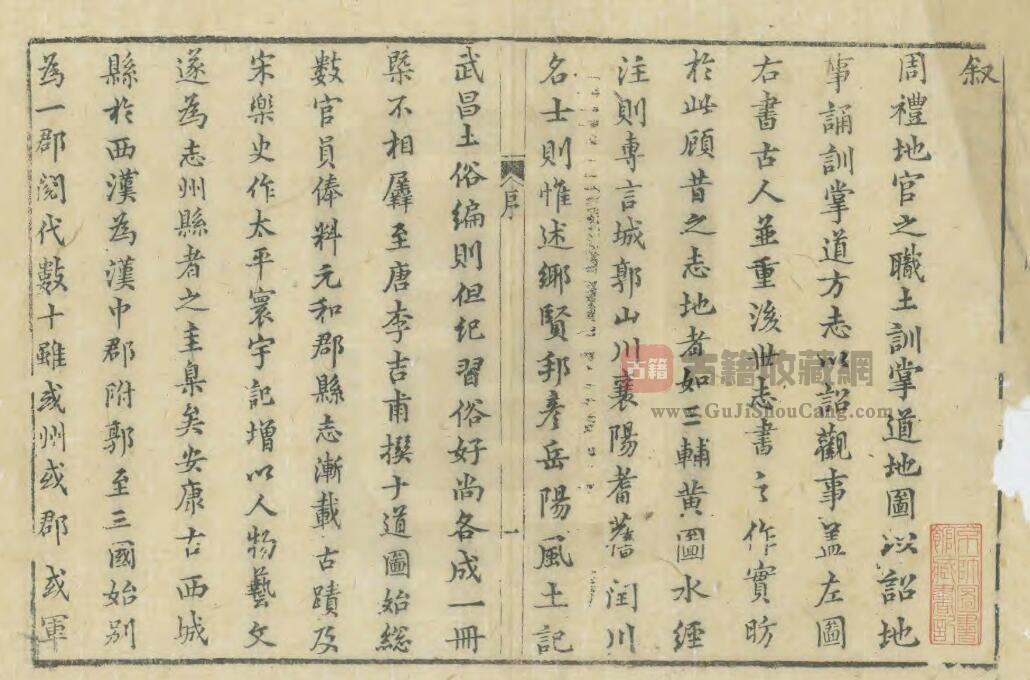 叙
周禮地官之職土訓掌道地圖以詔地
事誦訓掌道方志以詔觀事盖左圖
右書古人並重後世志書之作實昉
於此顧昔之志地者如三輔黄圖水經
注則專言城郭山川襄陽耆舊閏川
名士則惟述鄉賢邦彥岳陽風土記
序
一
武昌土俗編則但紀習俗好尚各成一冊
槩不相羼至唐李吉甫撰十道圖始総
數官員俸料元和郡縣志漸載古蹟及
宋樂史作太平寰宇記增以人物藝文
遂為志州縣者之圭臬矣安康古西城
縣於西漢為漢中郡附郭至三國始别
為一郡閱代數十雖或州或郡或軍
古籍
古籍收藏網
www.GuJiShouCang.com
京師圖書
館藏書記